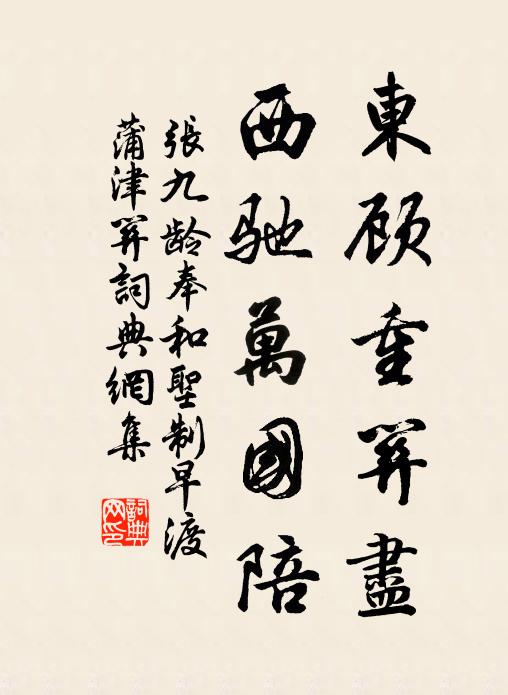 東顾重關盡
西馳萬國陪
張九龄奉和聖制早渡
蒲津關詞典網集
詞典
网印